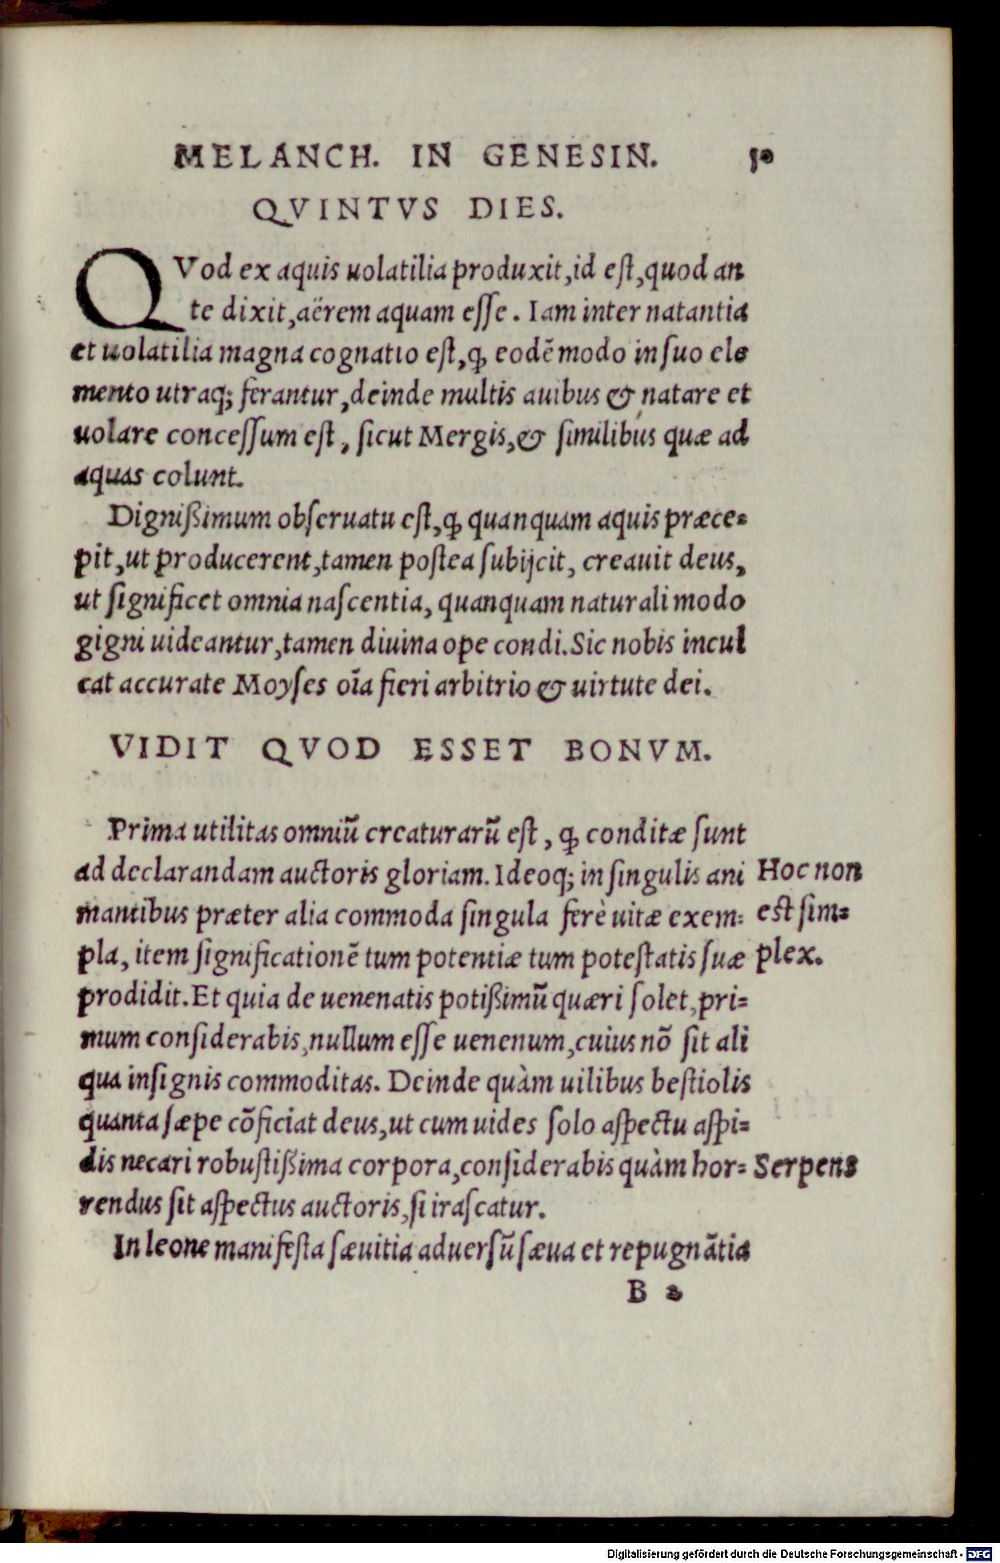 MELANCH. IN GENESIN. 10
QVINTVS DIES.
QVod ex aquis uolatilia produxit, id eſt, quod an
te dixit, aërem aquam eſſe. Iam inter natantia
et uolatilia magna cognatio eſt, ꝙ eodē modo in ſuo ele
mento utraq; ferantur, deinde multis auibus & natare et
uolare conceſſum eſt, ſicut Mergis, & ſimilibus quæ ad
aquas colunt.
Digniſſimum obſeruatu eſt, ꝙ quanquam aquis præce=
pit, ut producerent, tamen poſtea ſubijcit, creauit deus,
ut ſignificet omnia naſcentia, quanquam naturali modo
gigni uideantur, tamen diuina ope condi. Sic nobis incul
cat accurate Moyſes oīa fieri arbitrio & uirtute dei.
VIDIT QVOD ESSET BONVM.
Prima utilitas omniū creaturarū eſt, ꝙ conditæ ſunt
ad declarandam auctoris gloriam. Ideoq; in ſingulis ani
mantibus præter alia commoda ſingula ferè uitæ exem=
pla, item ſignificationē tum potentiæ tum poteſtatis ſuæ
prodidit. Et quia de uenenatis potißimū quæri ſolet, pri=
mum conſiderabis, nullum eſſe uenenum, cuius nō ſit ali
qua inſignis commoditas. Deinde quàm uilibus beſtiolis
quanta ſæpe cōficiat deus, ut cum uides ſolo aſpectu aſpi=
dis necari robuſtißima corpora, conſiderabis quàm hor=
rendus ſit aſpectus auctoris, ſi iraſcatur.
In leone manifeſta ſæuitia aduerſū ſæua et repugnātia
B 2
Hoc non
eſt ſim=
plex.
Serpens
Digitalisierung gefördert durch die Deutsche Forschungsgemeinschaft - DFG